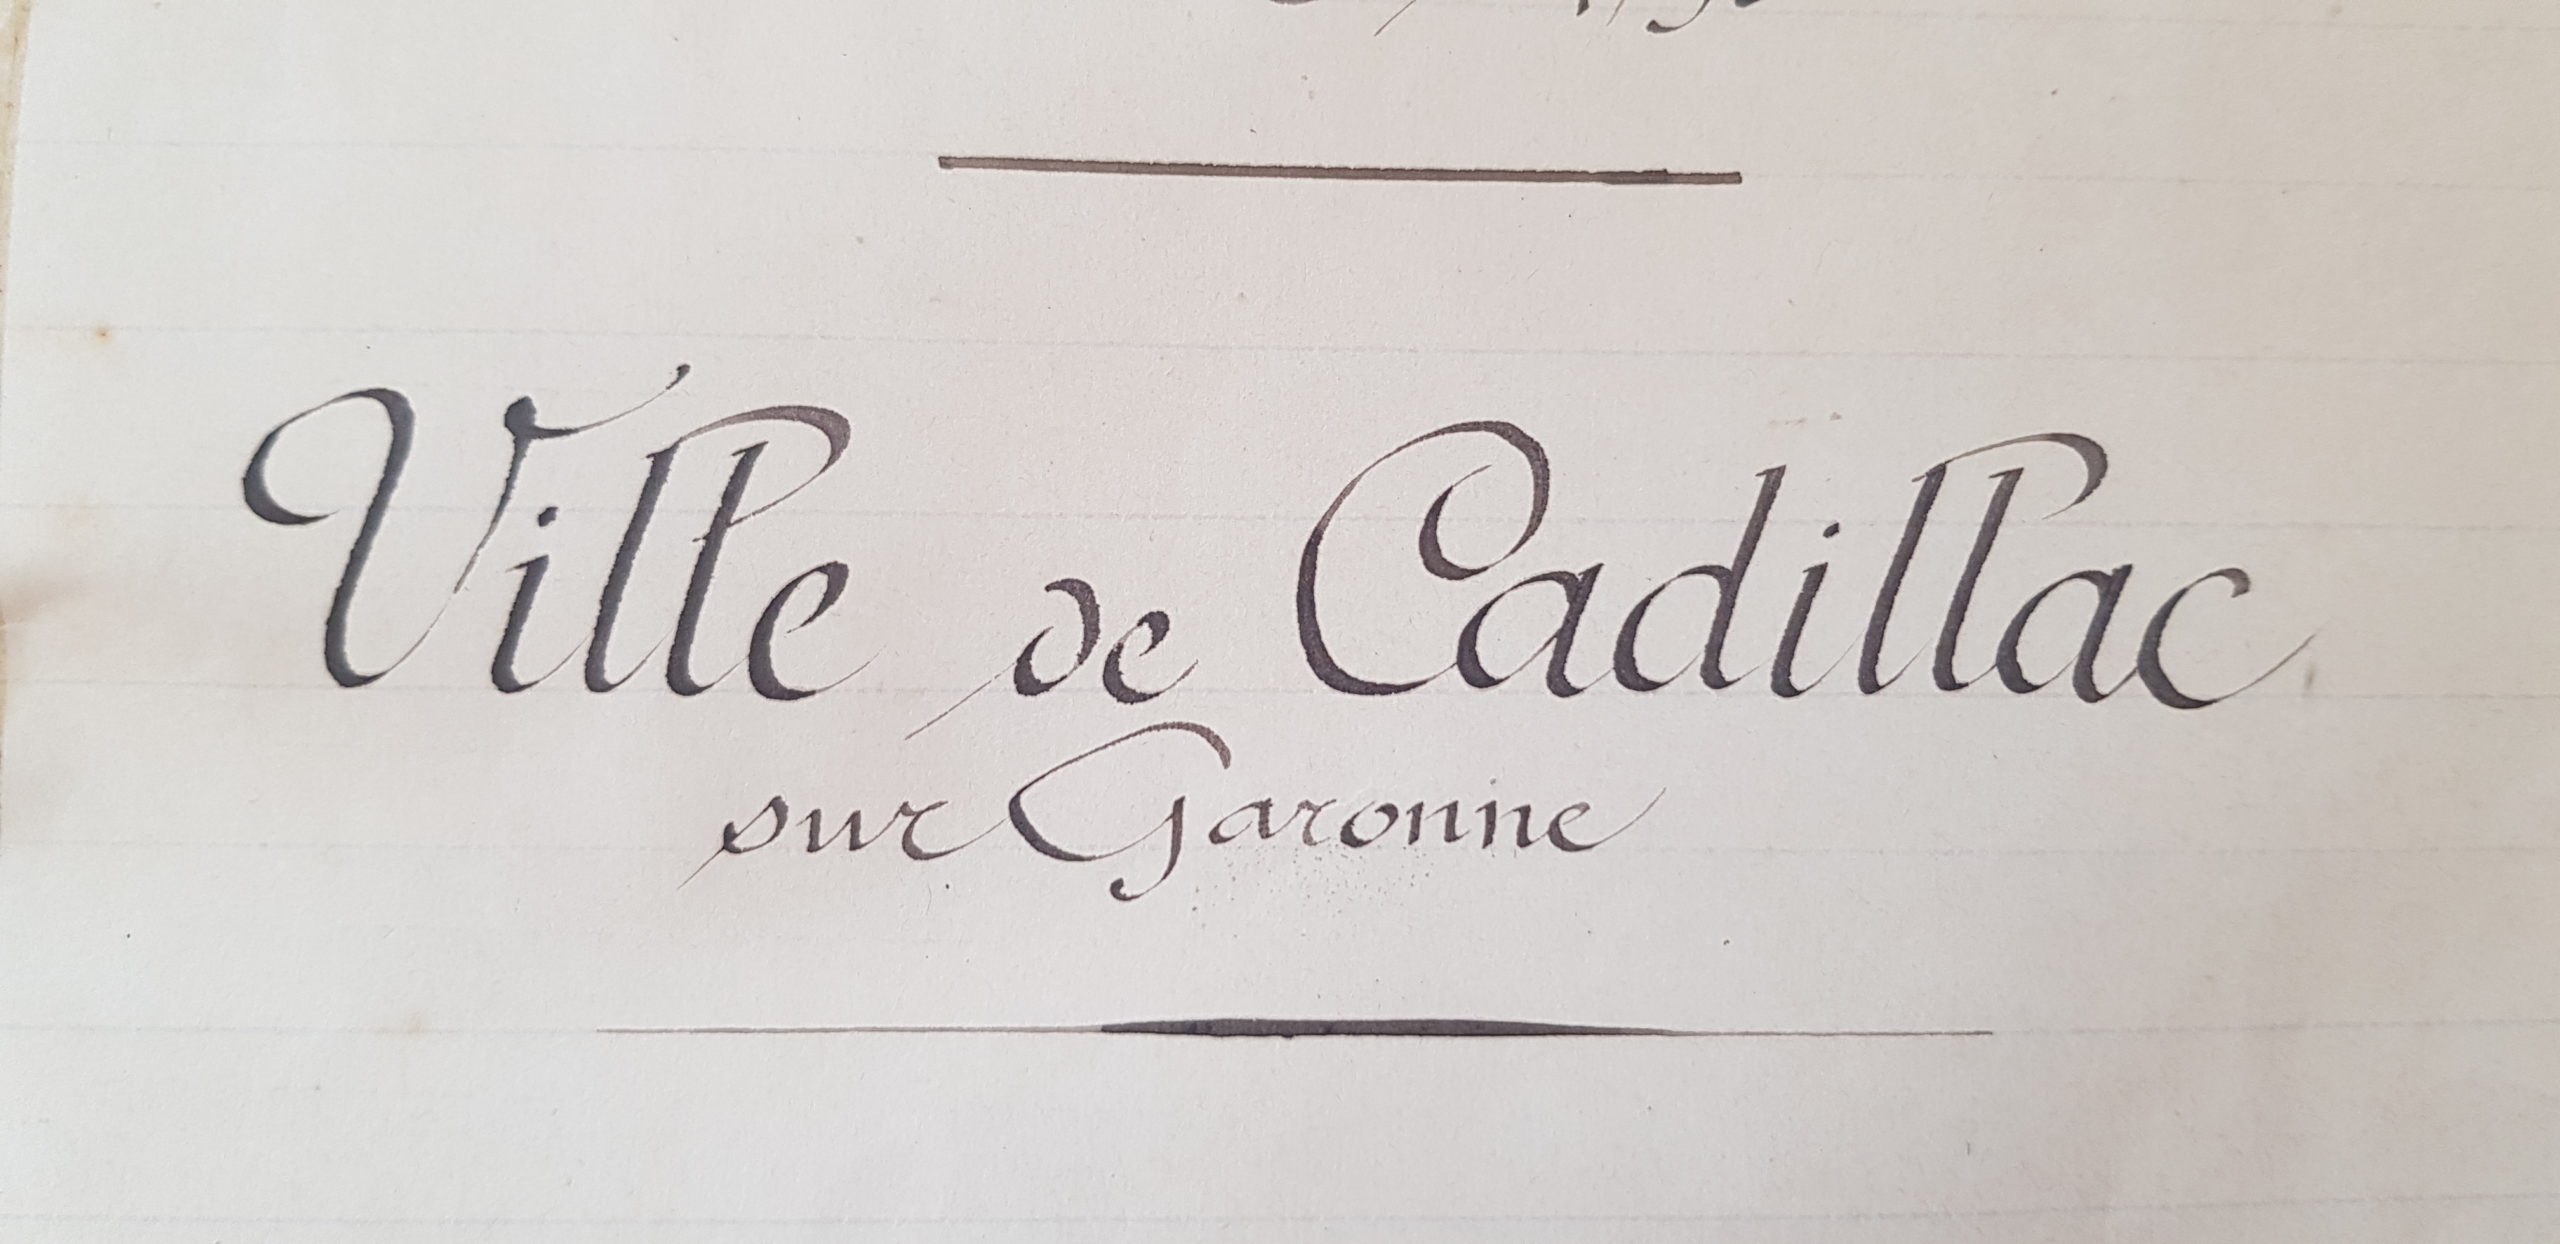 Ville de Cadillac
sur Garonne